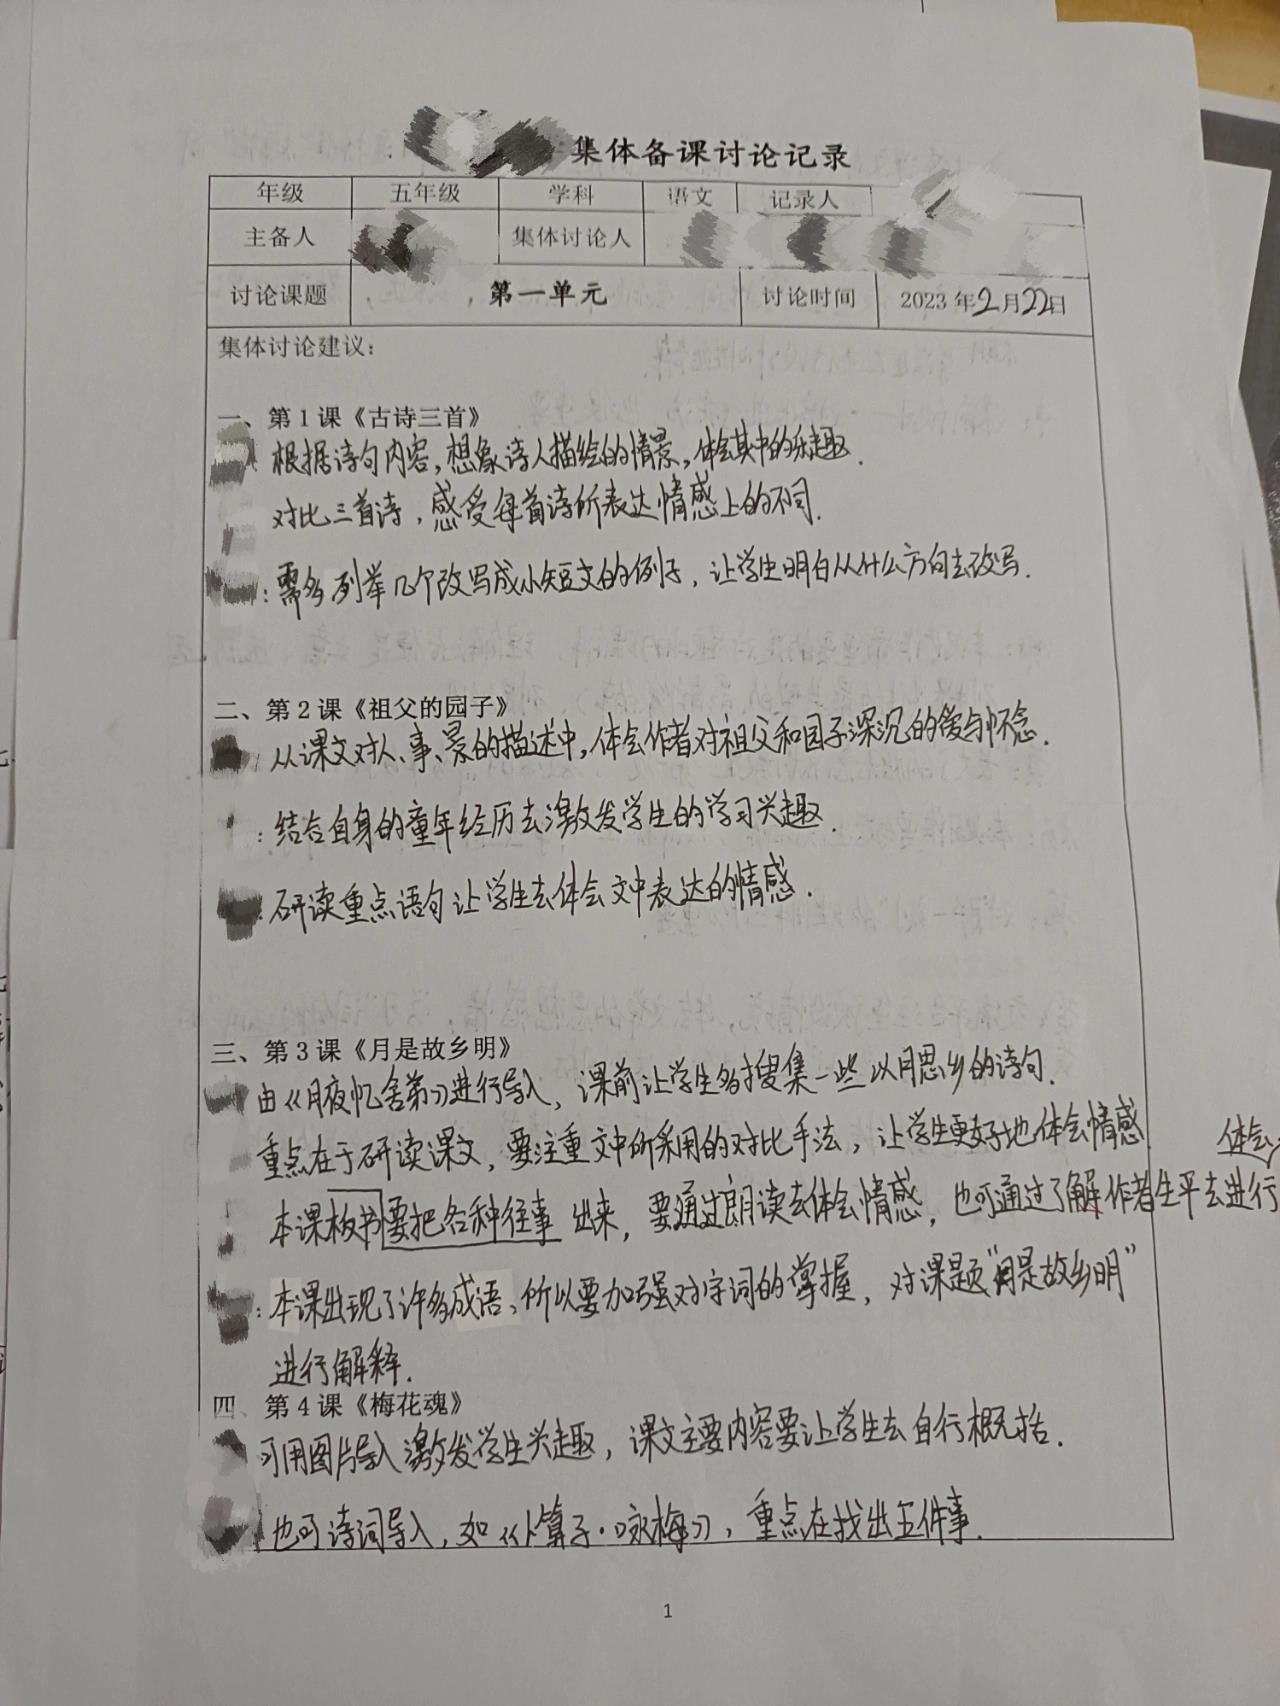 集体备课讨论记录
年级 五年级 学科 语文 记录人
主备人 集体讨论人
讨论课题 第一单元 讨论时间 2023年2月22日
集体讨论建议：
一、第1课《古诗三首》
根据诗句内容，想象诗人描绘的情景，体会其中的乐趣．
对比三首诗，感受每首诗所表达情感上的不同．
：需多列举几个改写成小短文的例子，让学生明白从什么方向去改写．
二、第2课《祖父的园子》
从课文对人、事、景的描述中，体会作者对祖父和园子深沉的爱与怀念．
：结合自身的童年经历去激发学生的学习兴趣．
：研读重点语句让学生去体会文中表达的情感．
三、第3课《月是故乡明》
由《月夜忆舍弟》进行导入，课前让学生多搜集一些以月思乡的诗句．
重点在于研读课文，要注重文中所采用的对比手法，让学生更好地体会情感
体会
本课板书要把各种往事 出来，要通过朗读去体会情感，也可通过了解作者生平去进行
：本课出现了许多成语，所以要加强对字词的掌握，对课题“月是故乡明”
进行解释．
四、第4课《梅花魂》
可用图片导入激发学生兴趣，课文主要内容要让学生去自行概括．
也可诗词导入，如《卜算子·咏梅》，重点在找出五件事．
1